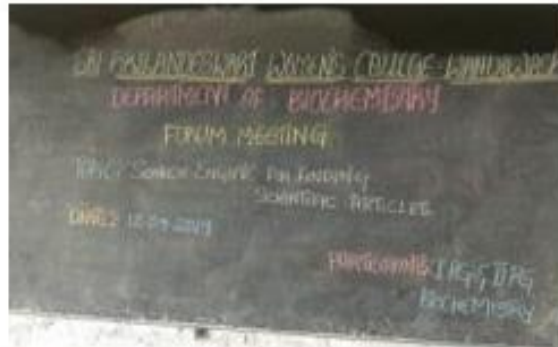 WOMEN'S COLLEGE-WANDIWASH
DEPARTMENT OF BIOCHEMISTRY
FORUM MEETING
TOPIC: SEARCH ENGINE FOR
SCIENTIFIC ARTICLES
DATE:
PARTICIPANTS: I PG, II PG
BIOCHEMISTRY